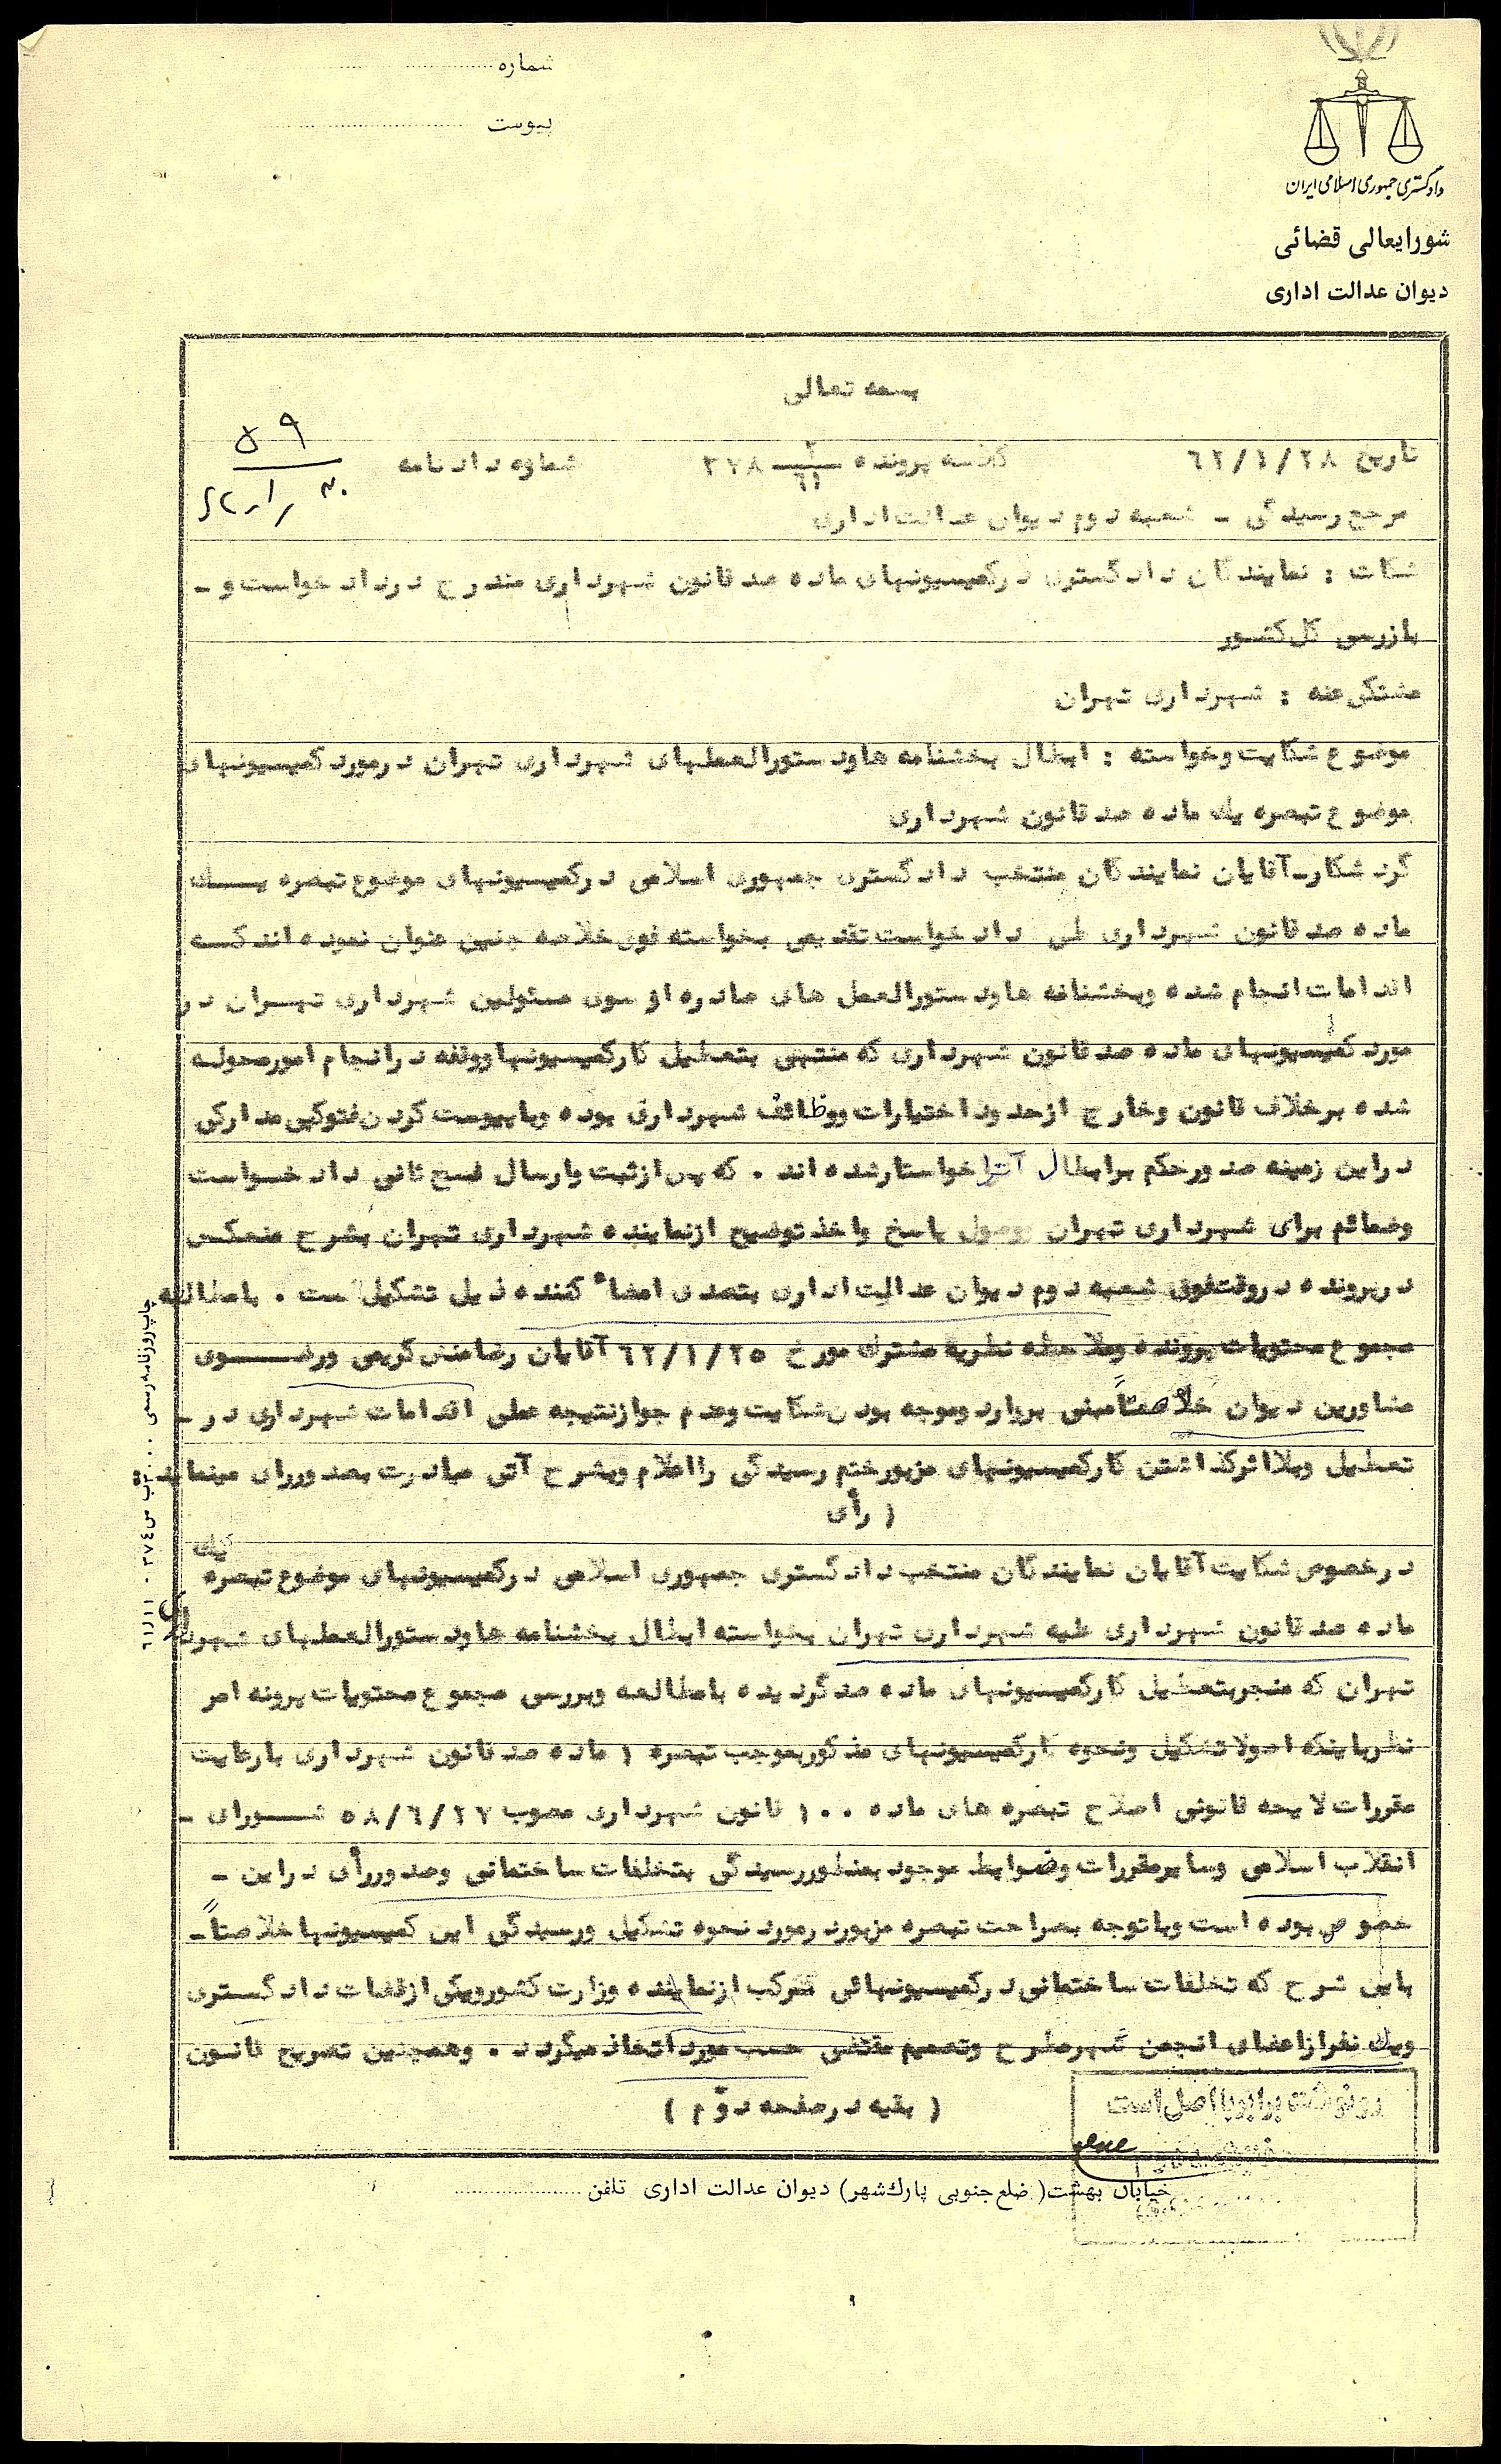 شماره
پیوست
دادگستری جمهوری اسلامی ایران
شورایعالی قضائی
دیوان عدالت اداری
بسمه تعالی
تاریخ ۶۲/۱/۲۸ کلاسه پرونده ۲/۶۱ ـ ۲۷۸ شماره دادنامه ۵۹
مرجع رسیدگی ـ شعبه دوم دیوان عدالت اداری
شکات : نمایندگان دادگستری در کمیسیونهای ماده صد قانون شهرداری مندرج در دادخواست و ـ
بازرسی کل کشور
مشتکی عنه : شهرداری تهران
موضوع شکایت وخواسته : ابطال بخشنامه ها ودستورالعملهای شهرداری تهران درمورد کمیسیونهای
موضوع تبصره یک ماده صد قانون شهرداری
گردشکار ـ آقایان نمایندگان منتخب دادگستری جمهوری اسلامی در کمیسیونهای موضوع تبصره یک
ماده صد قانون شهرداری طی دادخواست تقدیمی بخواسته فوق خلاصه چنین عنوان نموده اند که
اقدامات انجام شده وبخشنامه ها ودستورالعمل های صادره از سوی مسئولین شهرداری تهران در
مورد کمیسیونهای ماده صد قانون شهرداری که منتهی بتعطیل کارکمیسیونها ووقفه درانجام امورمحوله
شده برخلاف قانون وخارج ازحدود اختیارات ووظائف شهرداری بوده وباپیوست کردن فتوکپی مدارکی
دراین زمینه صدورحکم برابطال آنرا خواستارشده اند . که پس ازثبت وارسال نسخ ثانی دادخواست
وضمائم برای شهرداری تهران وصول پاسخ واخذ توضیح ازنماینده شهرداری تهران بشرح منعکس
درپرونده دروقت فوق شعبه دوم دیوان عدالت اداری بتصدی امضاء کننده ذیل تشکیل است . بامطالعه
مجموع محتویات پرونده وملاحظه نظریه مشترک مورخ ۶۲/۱/۲۵ آقایان رضامنش کریمی ورضوی
مشاورین دیوان خلاصتاً مبنی بروارد وموجه بودن شکایت وعدم جوازنتیجه عملی اقدامات شهرداری در ـ
تعطیل وبلااثرگذاشتن کارکمیسیونهای مزبورختم رسیدگی رااعلام وبشرح آتی مبادرت بصدوررای مینماید
( رأی
درخصوص شکایت آقایان نمایندگان منتخب دادگستری جمهوری اسلامی درکمیسیونهای موضوع تبصره یک
ماده صد قانون شهرداری علیه شهرداری تهران بخواسته ابطال بخشنامه ها ودستورالعملهای شهرداری
تهران که منجربتعطیل کارکمیسیونهای ماده صد گردیده بامطالعه وبررسی مجموع محتویات پرونه امر
نظرباینکه اصولا تشکیل ونحوه کارکمیسیونهای مذکوربموجب تبصره ۱ ماده صد قانون شهرداری بارعایت
مقررات لایحه قانونی اصلاح تبصره های ماده ۱۰۰ قانون شهرداری مصوب ۵۸/۶/۲۷ شورای ـ
انقلاب اسلامی وسایرمقررات وضوابط موجود بمنظوررسیدگی بتخلفات ساختمانی وصدوررأی دراین ـ
خصوص بوده است وباتوجه بصراحت تبصره مزبوردرمورد نحوه تشکیل ورسیدگی این کمیسیونها خلاصتاً ـ
باین شرح که تخلفات ساختمانی درکمیسیونهائی مرکب ازنماینده وزارت کشورویکی ازقضات دادگستری
ویک نفرازاعضای انجمن شهرمطرح وتصمیم مقتضی حسب مورد اتخاذ میگردد . وهمچنین تصریح قانون
( بقیه درصفحه دوّم )
رونوشت برابربااصل است
خیابان بهشت (ضلع جنوبی پارك شهر) دیوان عدالت اداری تلفن
چاپ روزنامه رسمی